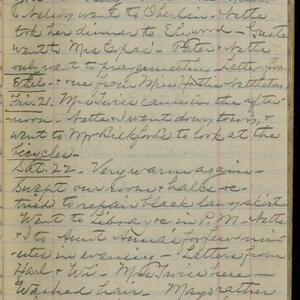 Nelson went to Oberlin - Nette
took her dinner to Elywood -
went to Mrs - Peter & Nette
only went to prayermeeting - Letter from
Ethel - & one from Miss Hattie Nettleton
Fri. 21. Mrs came in the after-
noon. Nette & I went down town, &
went to Mr Bickford's to look at the
bicycles -
Sat. 22 - Very warm again -
Swept our room & halls &c
tried to repair black lawn skirt
Went to Library &c in P.M. - Nette
& I to Aunt Anna's for few min-
utes in evening - Letters from
Harl & Wi - Mrs here -
Washed hair - May rather